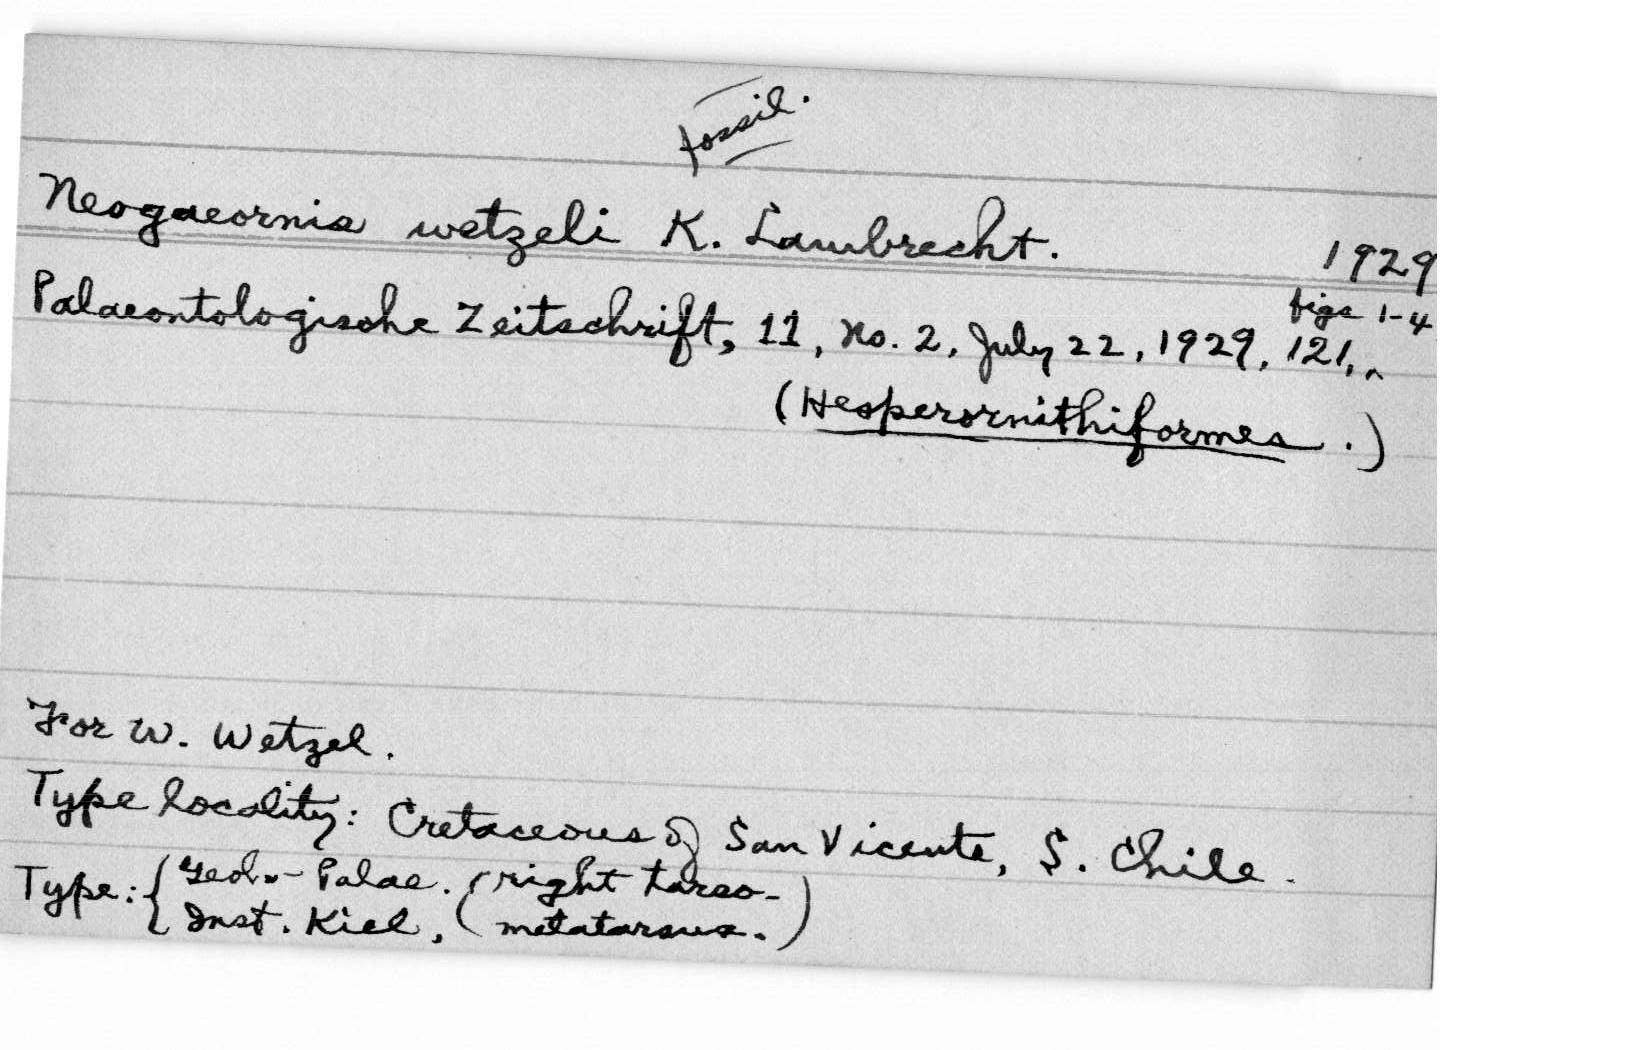 fossil.
Neogaeornis wetzeli K. Lambrecht. 1929
figs 1-4
Palaeontologische Zeitschrift, 11, No. 2, July 22, 1929, 121, ^
(Hesperornithiformes.)
For W. Wetzel.
Type locality: Cretaceous of San Vicente, S. Chile.
Type: { Geol.-Palae. (right tarso-
Inst. Kiel, ( metatarsus. )